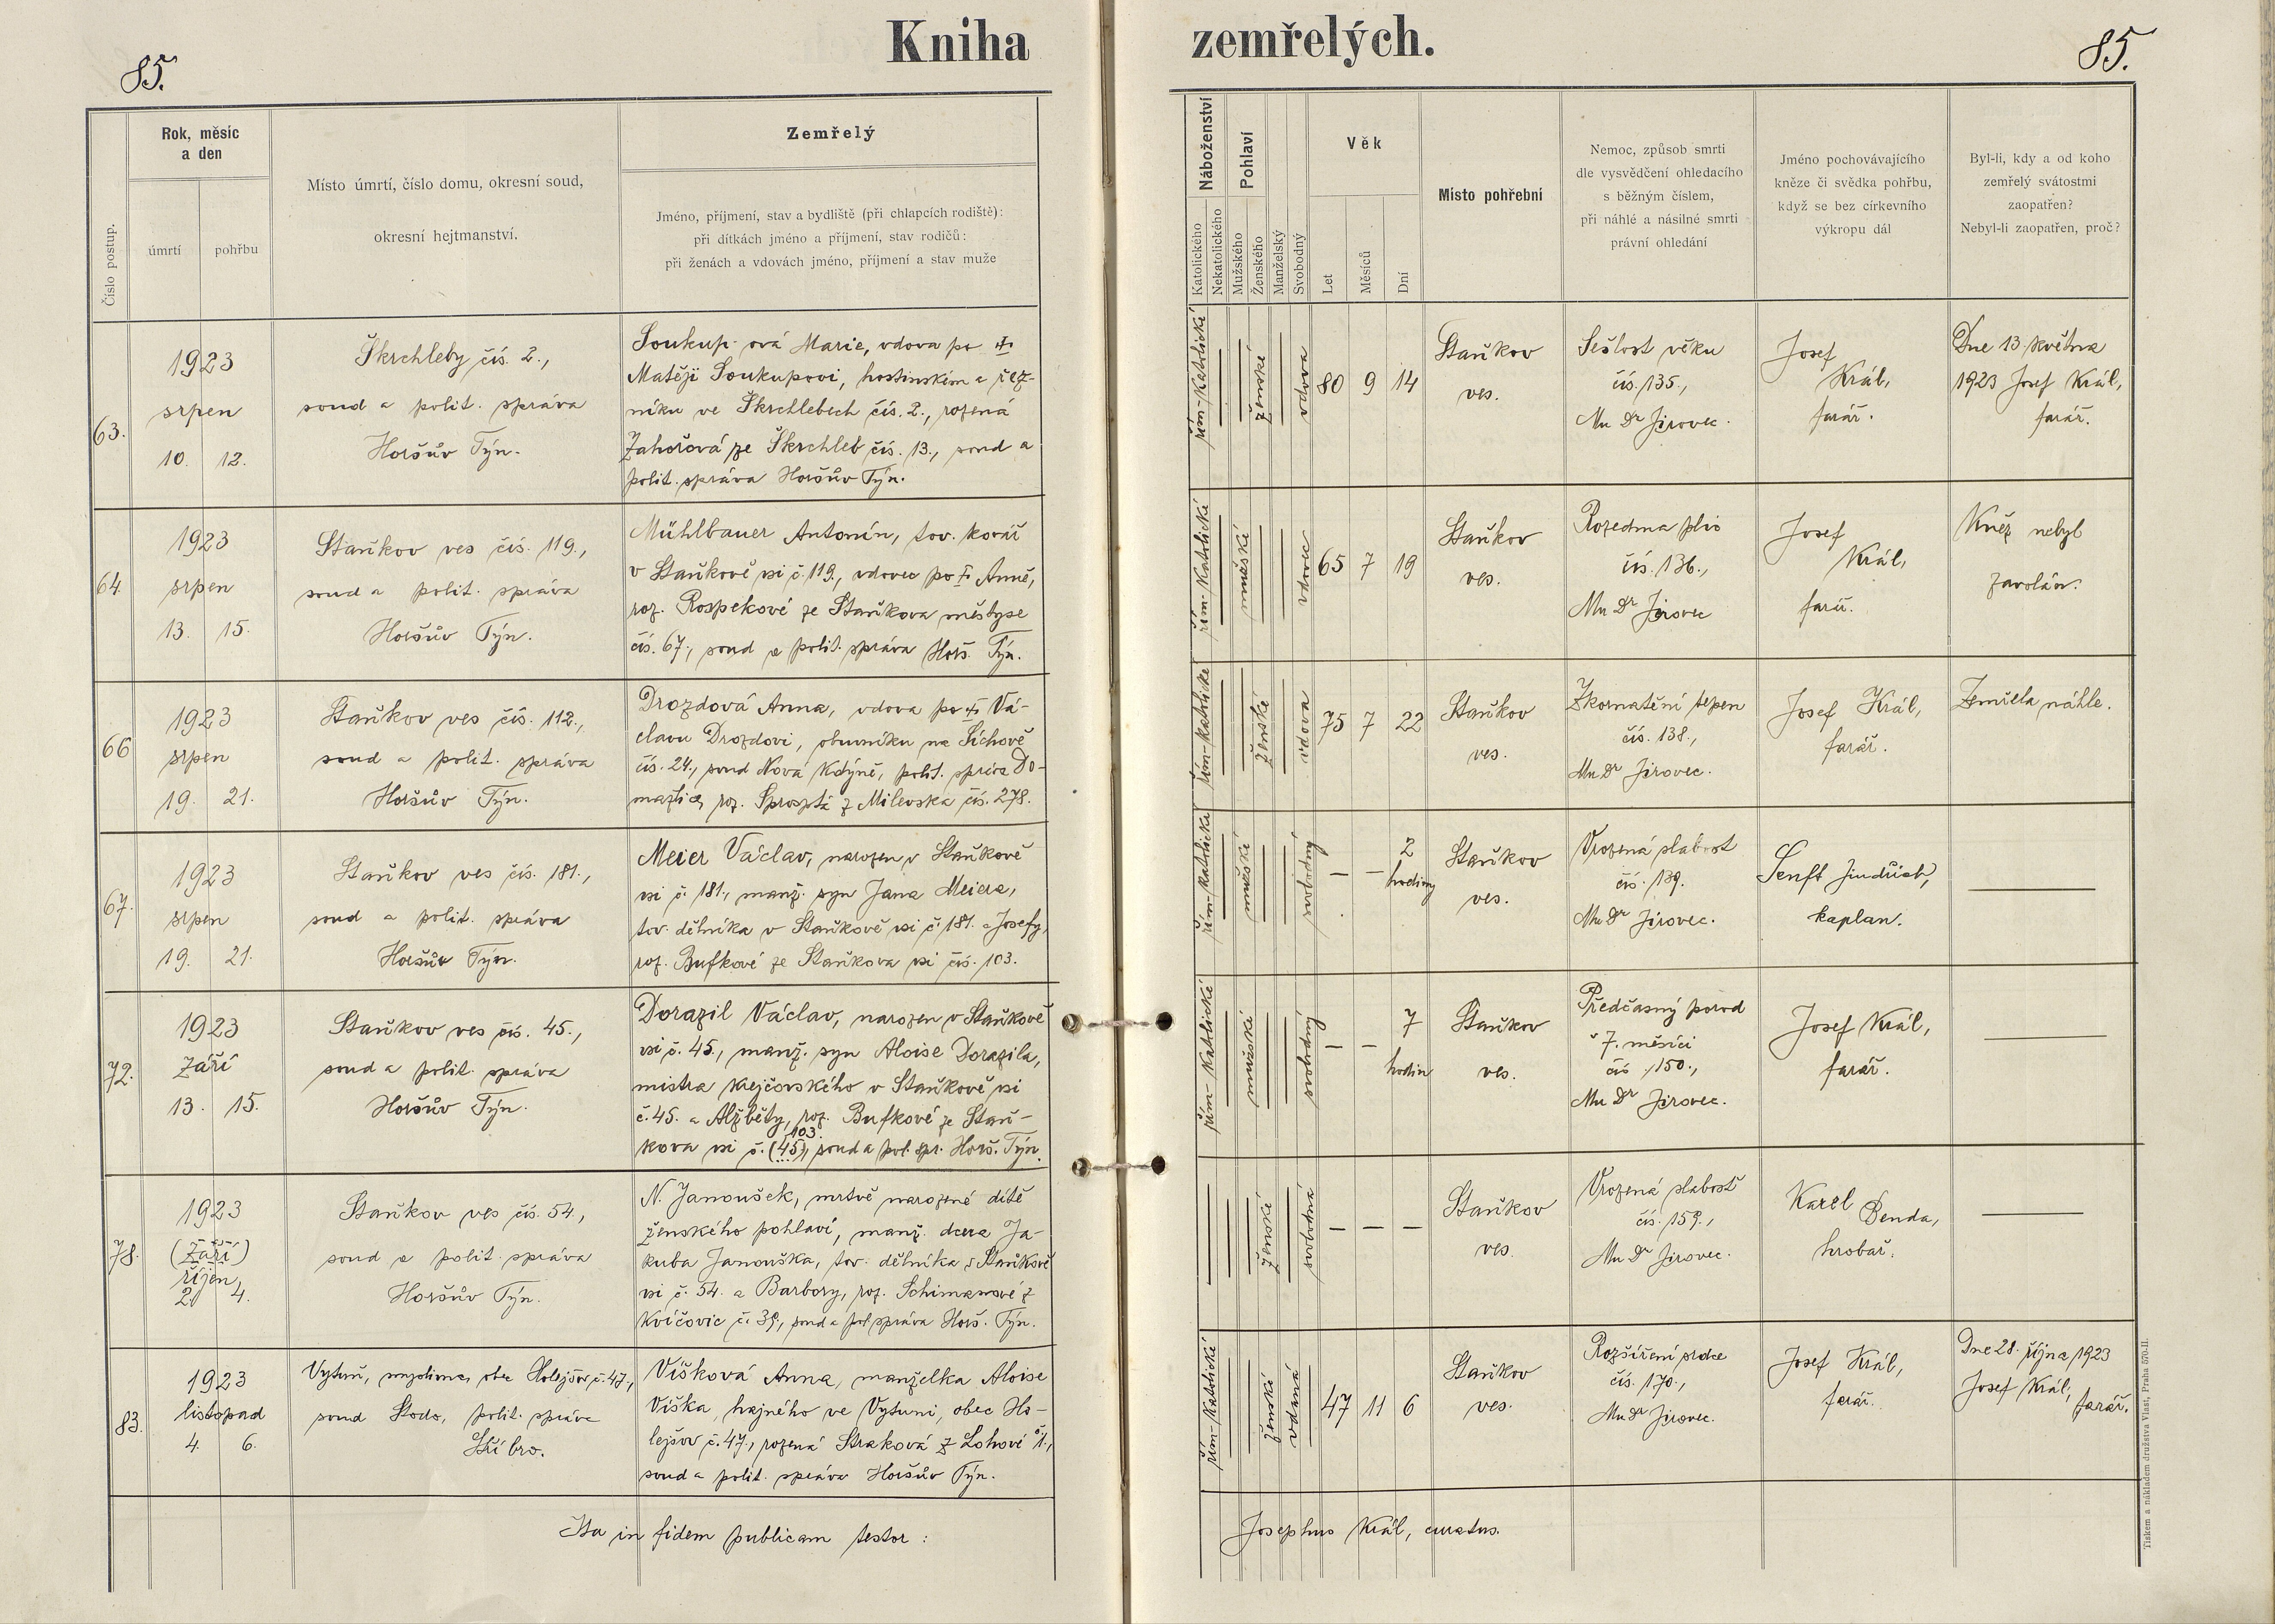 Kniha zemřelých.
85.
85.
Číslo postup.
Rok, měsíc
a den
úmrtí
pohřbu
Místo úmrtí, číslo domu, okresní soud,
okresní hejtmanství.
Zemřelý
Jméno, příjmení, stav a bydliště (při chlapcích rodiště):
při dítkách jméno a příjmení, stav rodičů:
při ženách a vdovách jméno, příjmení a stav muže
Náboženství
Katolického
Nekatolického
Pohlaví
Mužského
Ženského
Manželský
Svobodný
Věk
Let
Měsíců
Dní
Místo pohřební
Nemoc, způsob smrti
dle vysvědčení ohledacího
s běžným číslem,
při náhlé a násilné smrti
právní ohledání
Jméno pochovávajícího
kněze či svědka pohřbu,
když se bez církevního
výkropu dál
Byl-li, kdy a od koho
zemřelý svátostmi
zaopatřen?
Nebyl-li zaopatřen, proč?
63.
1923
srpen
10. 12.
Škrchleby čís. 2.,
soud a polit. správa
Horšův Týn.
Soukup-ová Marie, vdova po †
Matěji Soukupovi, hostinském a řez-
níku ve Škrchlebech čís. 2., rozená
Zahořová ze Škrchleb čís. 13., soud a
polit. správa Horšův Týn.
řím-katolické
ženské
vdova
80 9 14
Staňkov
ves.
Sešlost věku
čís. 135.,
Mu Dr Jirovec.
Josef
Král,
farář.
Dne 13. května
1923 Josef Král,
farář.
64.
1923
srpen
13. 15.
Staňkov ves čís. 119.,
soud a polit. správa
Horšův Týn.
Mühlbauer Antonín, tov. kovář
v Staňkově vsi č. 119., vdovec po † Anně,
roz. Rospekové ze Staňkova městyse
čís. 67., soud a polit. správa Horš. Týn.
řím-katolické
mužské
vdovec
65 7 19
Staňkov
ves.
Rozedma plic
čís. 136.,
Mu Dr Jirovec
Josef
Král,
farář.
Kněz nebyl
zavolán.
66
1923
srpen
19. 21.
Staňkov ves čís. 112.,
soud a polit. správa
Horšův Týn.
Drozdová Anna, vdova po † Vá-
clavu Drozdovi, obuvníku na Smíchově
čís. 24., soud Nová Kdýně, polit. správa Do-
mažlice, roz. Sprostá z Milevska čís. 278.
řím-katolické
ženské
vdova
75 7 22
Staňkov
ves.
Zkornatění tepen
čís. 138.,
Mu Dr Jirovec.
Josef Král,
farář.
Zemřela náhle.
67.
1923
srpen
19. 21.
Staňkov ves čís. 181.,
soud a polit. správa
Horšův Týn.
Meier Václav, narozen v Staňkově
vsi č. 181., manž. syn Jana Meiera,
tov. dělníka v Staňkově vsi č. 181. a Josefy,
roz. Bufkové ze Staňkova vsi čís. 103.
řím-katolické
mužské
svobodný
– – 2
hodiny
Staňkov
ves.
Vrozená slabost
čís. 139.
Mu Dr Jirovec.
Senft Jindřich,
kaplan.
72.
1923
září
13. 15.
Staňkov ves čís. 45.,
soud a polit. správa
Horšův Týn.
Dorazil Václav, narozen v Staňkově
vsi č. 45., manž. syn Aloise Dorazila,
mistra krejčovského v Staňkově vsi
č. 45. a Alžběty, roz. Bufkové ze Staň-
103.
kova vsi č. (45), soud a pol. spr. Horš. Týn.
řím-katolické
mužské
svobodný
– – 7
hodin
Staňkov
ves.
Předčasný porod
v 7. měsíci
čís. 150.,
Mu Dr Jirovec.
Josef Král,
farář.
78.
1923
(září)
říjen
2. 4.
Staňkov ves čís. 54.,
soud a polit. správa
Horšův Týn.
N. Janoušek, mrtvě narozené dítě
ženského pohlaví, manž. dcera Ja-
kuba Janouška, tov. dělníka v Staňkově
vsi č. 54. a Barbory, roz. Schimanové z
Kvíčovic č. 39., soud a pol. správa Horš. Týn.
ženské
svobodná
– – –
Staňkov
ves.
Vrozená slabost
čís. 159.,
Mu Dr Jirovec.
Karel Benda,
hrobař.
83.
1923
listopad
4. 6.
Vytuň, myslivna, obec Holejšov č. 47.,
soud Stodo, polit. správa
Stříbro.
Víšková Anna, manželka Aloise
Víška, hajného ve Vytuni, obec Ho-
lejšov č. 47., rozená Straková z Lohové č 1.,
soud a polit. správa Horšův Týn.
řím-katolické
ženské
vdaná
47 11 6
Staňkov
ves.
Rozšíření srdce
čís. 170.,
Mu Dr Jirovec.
Josef Král,
farář.
Dne 28. října 1923
Josef Král,
farář.
Ita in fidem publicam testor:
Josephus Král, curatus.
Tiskem a nákladem družstva Vlast, Praha 570-II.